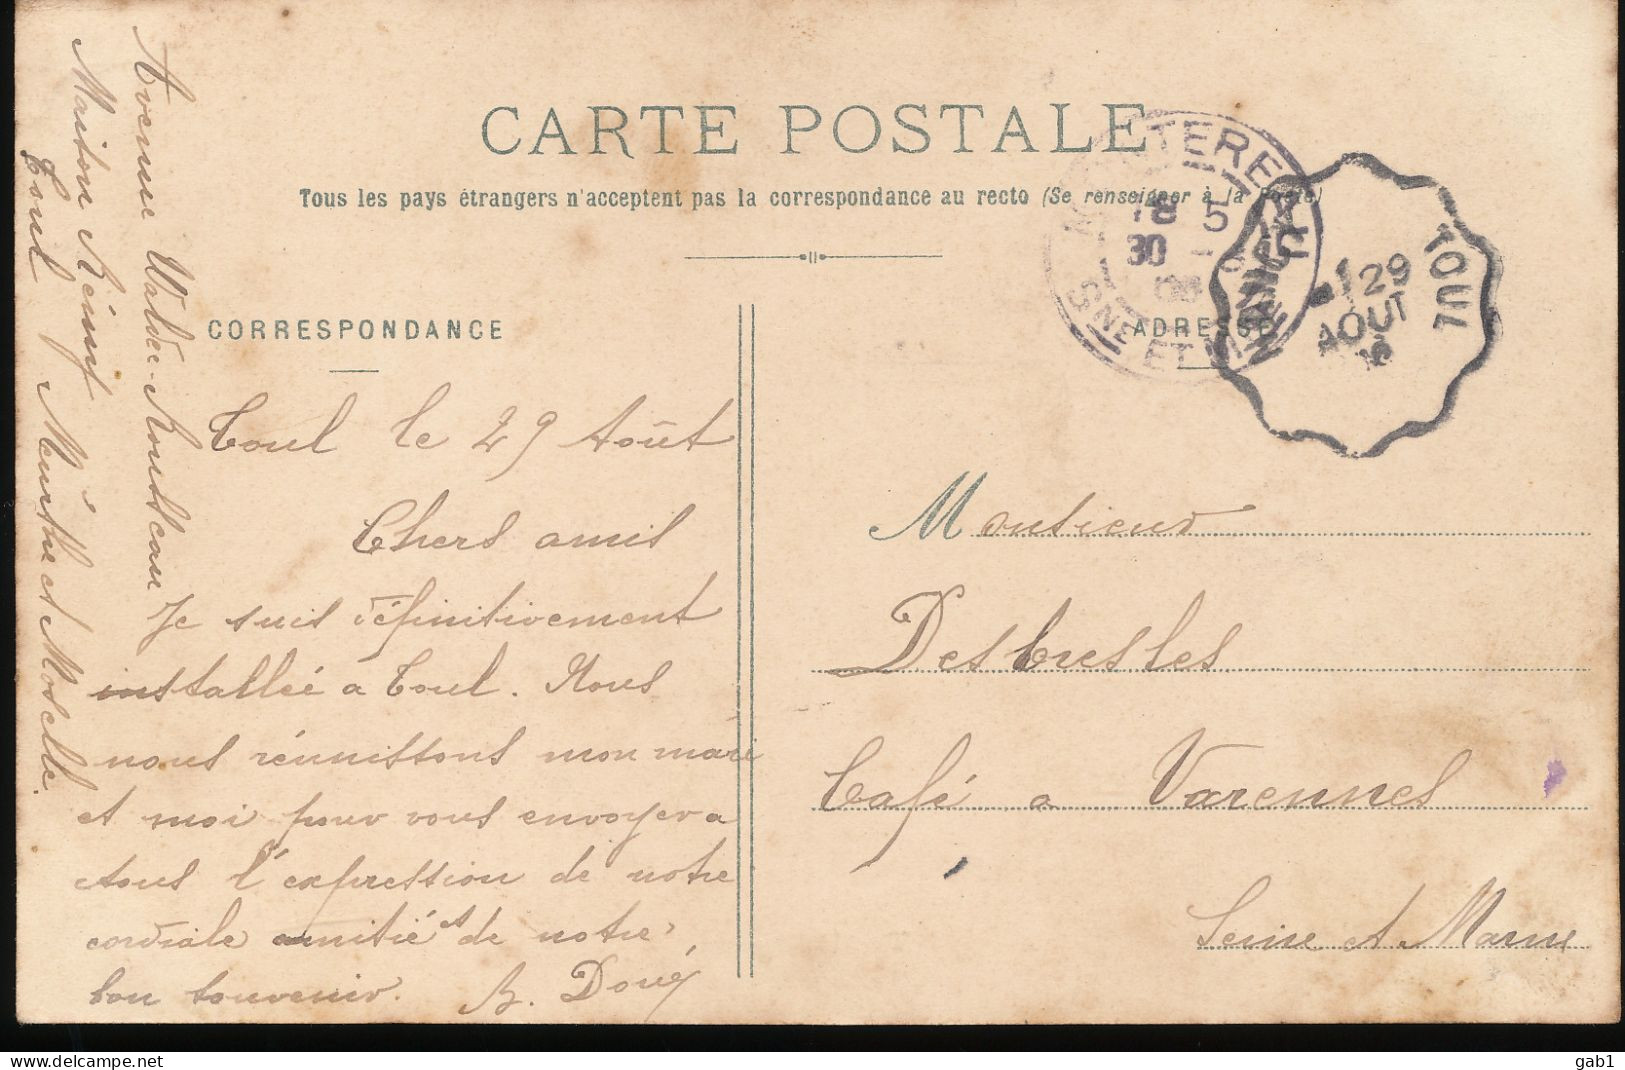 CARTE POSTALE
Tous les pays étrangers n'acceptent pas la correspondance au recto (Se renseigner à la Poste)
CORRESPONDANCE
ADRESSE
Toul le 29 Août
Chers amis
Je suis définitivement
installée a Toul. Nous
nous réunissons mon mari
et moi pour vous envoyer a
tous l'expression de notre
cordiale amitié et de notre
bon souvenir. B. Doué
Avenue Waldec-Rousseau
Maison
Toul Meurthe et Moselle.
Monsieur
Desbresles
Café a Varennes
Seine et Marne
18 5
30 - 8
08
SNE ET MARNE
TOUL
29
AOUT
gab1